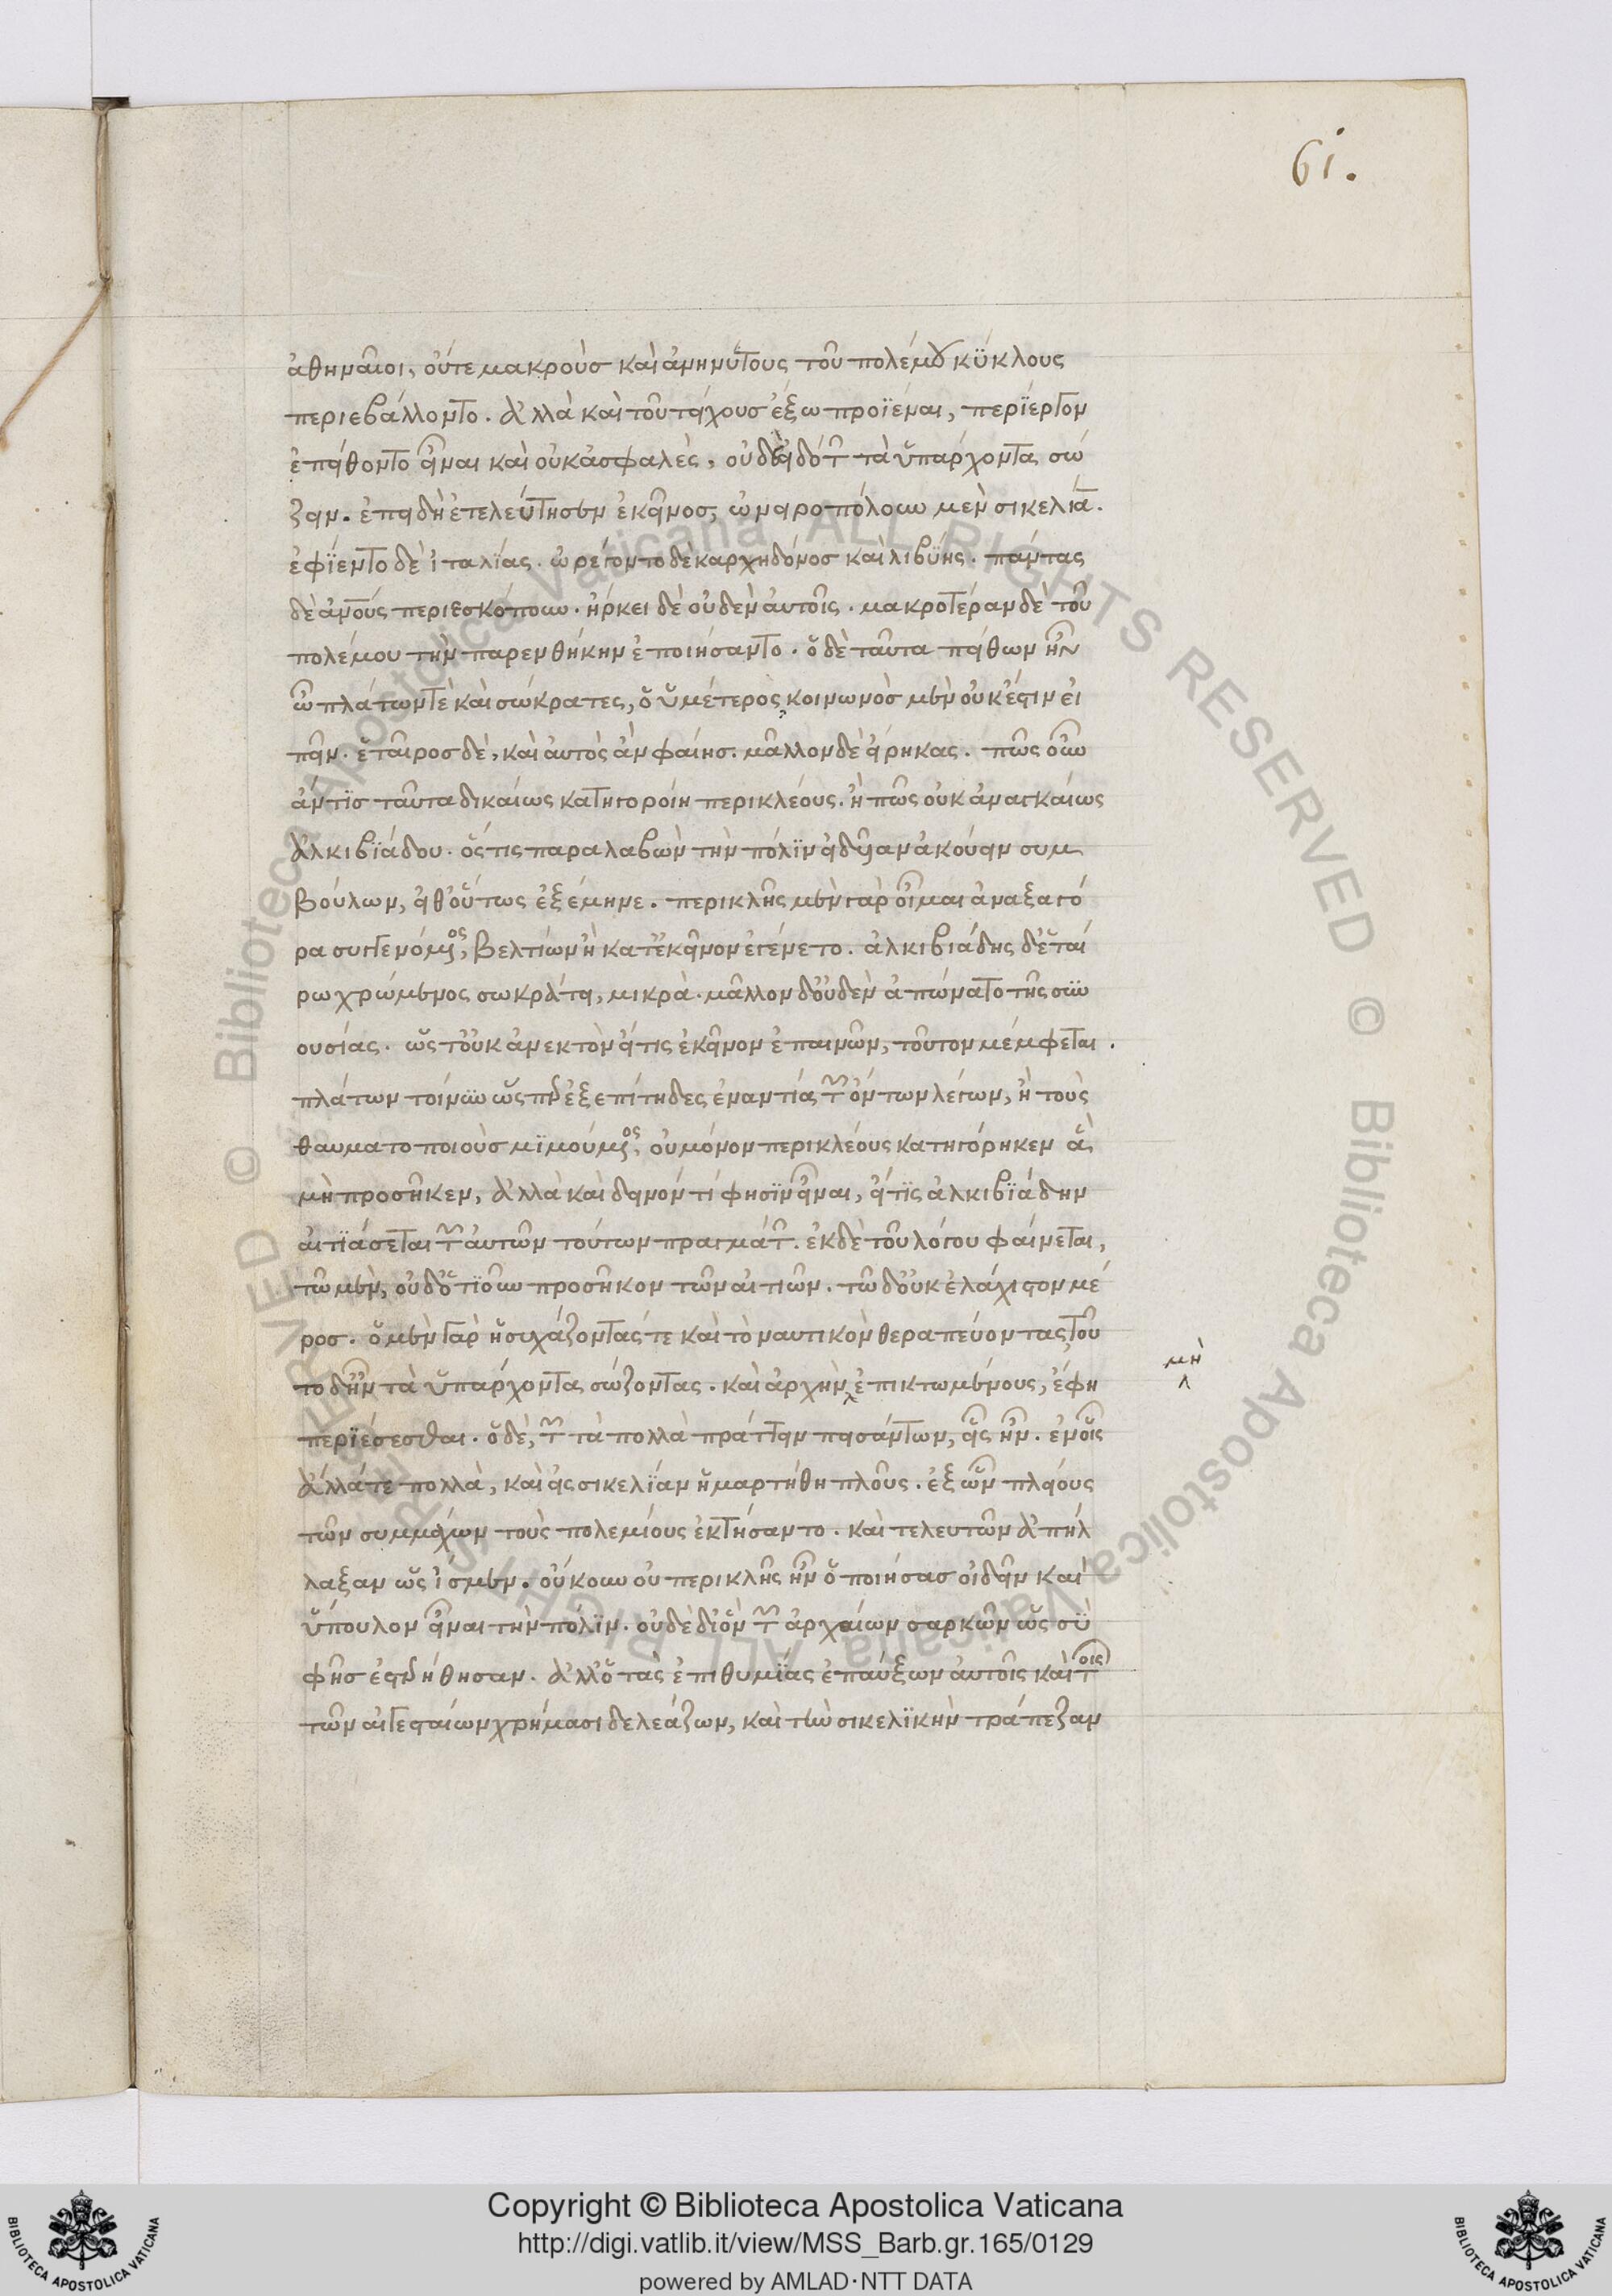 61.
ἀθηναῖοι, οὔτε μακροὺσ καὶ ἀνηνύτους τοῦ πολέμου κύκλους
περιεβάλλοντο. ἀλλὰ καὶ τοῦ τείχουσ ἔξω προϊέναι, περίεργον
ἐπείθοντο εἶναι καὶ οὐκ ἀσφαλὲς, τὰ ὑπάρχοντα σώ
ζειν. ἐπειδὴ ἐτελεύτησεν ἐκεῖνοσ, ὠνειροπόλουν μὲν σικελίαν.
ἐφίεντο δὲ ἰταλίας. ὠρέγοντο δὲ καρχηδόνοσ καὶ λιβύης. πάντας
δὲ ἀνους περιεσκόπουν. ἤρκει δὲ οὐδὲν αὐτοῖς. μακροτέραν δὲ τοῦ
πολέμου τὴν παρενθήκην ἐποιήσαντο. ὁ δὲ ταῦτα πείθων ἦν
ὦ πλάτων τὲ καὶ σώκρατες, ὁ ὑμέτερος κοινωνὸσ μὲν οὐκ ἔστιν εἰ
πεῖν. ἑταῖροσ δὲ, καὶ αὐτὸς ἂν φαίησ. μᾶλλον δὲ εἴρηκας. πῶς οὖν
ἄν τις ταῦτα δικαίως κατηγοροίη περικλέους. ἢ πῶς οὐκ ἀναγκαίως
ἀλκιβιάδου. ὅς τις παραλαβὼν τὴν πόλιν εἰδυῖαν ἀκούειν συμ
βούλων, εἶθ' οὕτως ἐξέμηνε. περικλῆς μὲν γὰρ οἶμαι ἀναξαγό
ρα συγγενόμενος, βελτίων ἢ κατ' ἐκεῖνον ἐγένετο. ἀλκιβιάδης δ' ἑταί
ρω χρώμενος σωκράτει, μικρὰ. μᾶλλον δ' οὐδὲν ἀπώνατο τῆς συν
ουσίας. ὥς τ' οὐκ ἀνεκτὸν εἴ τις ἐκεῖνον ἐπαινῶν, τοῦτον μέμφεται.
πλάτων τοίνυν ὥς περ ἐξεπίτηδες ἐναντία τῶν ὄντων λέγων, ἢ τοὺς
θαυματοποιοὺσ μιμούμενος, οὐ μόνον περικλέους κατηγόρηκεν ἃ
μὴ προσῆκεν, ἀλλὰ καὶ δεινόν τί φησιν εἶναι, εἴ τις ἀλκιβιάδην
αἰτιάσεται τῶν αὐτῶν τούτων πραγμάτων. ἐκ δὲ τοῦ λόγου φαίνεται,
τῶ μὲν, οὐδ' ὁτιοῦν προσῆκον τῶν αἰτιῶν. τῶ δ' οὐκ ἐλάχιστον μέ
ροσ. ὁ μὲν γὰρ ἡσυχάζοντάς τε καὶ τὸ ναυτικὸν θεραπεύοντας τοῦ
το δ' ἦν τὰ ὑπάρχοντα σώζοντας. καὶ ἀρχὴν ἐπικτωμένους, ἔφη
μὴ
περιέσεσθαι. ὁ δὲ, τῶν τὰ πολλὰ πράττειν πεισάντων, εἷς ἦν. ἐν οἷς
ἀλλά τε πολλὰ, καὶ εἰς σικελίαν ἡμαρτήθη πλοῦς. ἐξ ὧν πλείους
τῶν συμμάχων τοὺς πολεμίους ἐκτήσαντο. καὶ τελευτῶν ἀπήλ
λαξαν ὡς ἴσμεν. οὔκουν οὐ περικλῆς ἦν ὁ ποιήσασ οἰδεῖν καὶ
ὕπουλον εἶναι τὴν πόλιν. οὐδὲ δι' ὃν τῶν ἀρχαίων σαρκῶν ὡς σὺ
φῆσ ἐστερήθησαν. ἀλλ' ὁ τὰς ἐπιθυμίας ἐπαύξων αὐτοῖς καὶ τοῖς
τῶν αἰγεσταίων χρήμασι δελεάζων, καὶ τὴν σικελικὴν τράπεζαν
Copyright © Biblioteca Apostolica Vaticana
http://digi.vatlib.it/view/MSS_Barb.gr.165/0129
powered by AMLAD·NTT DATA